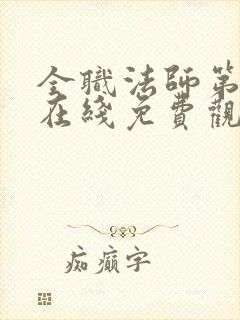 全職法師第
在綫免費觀
痴癲字